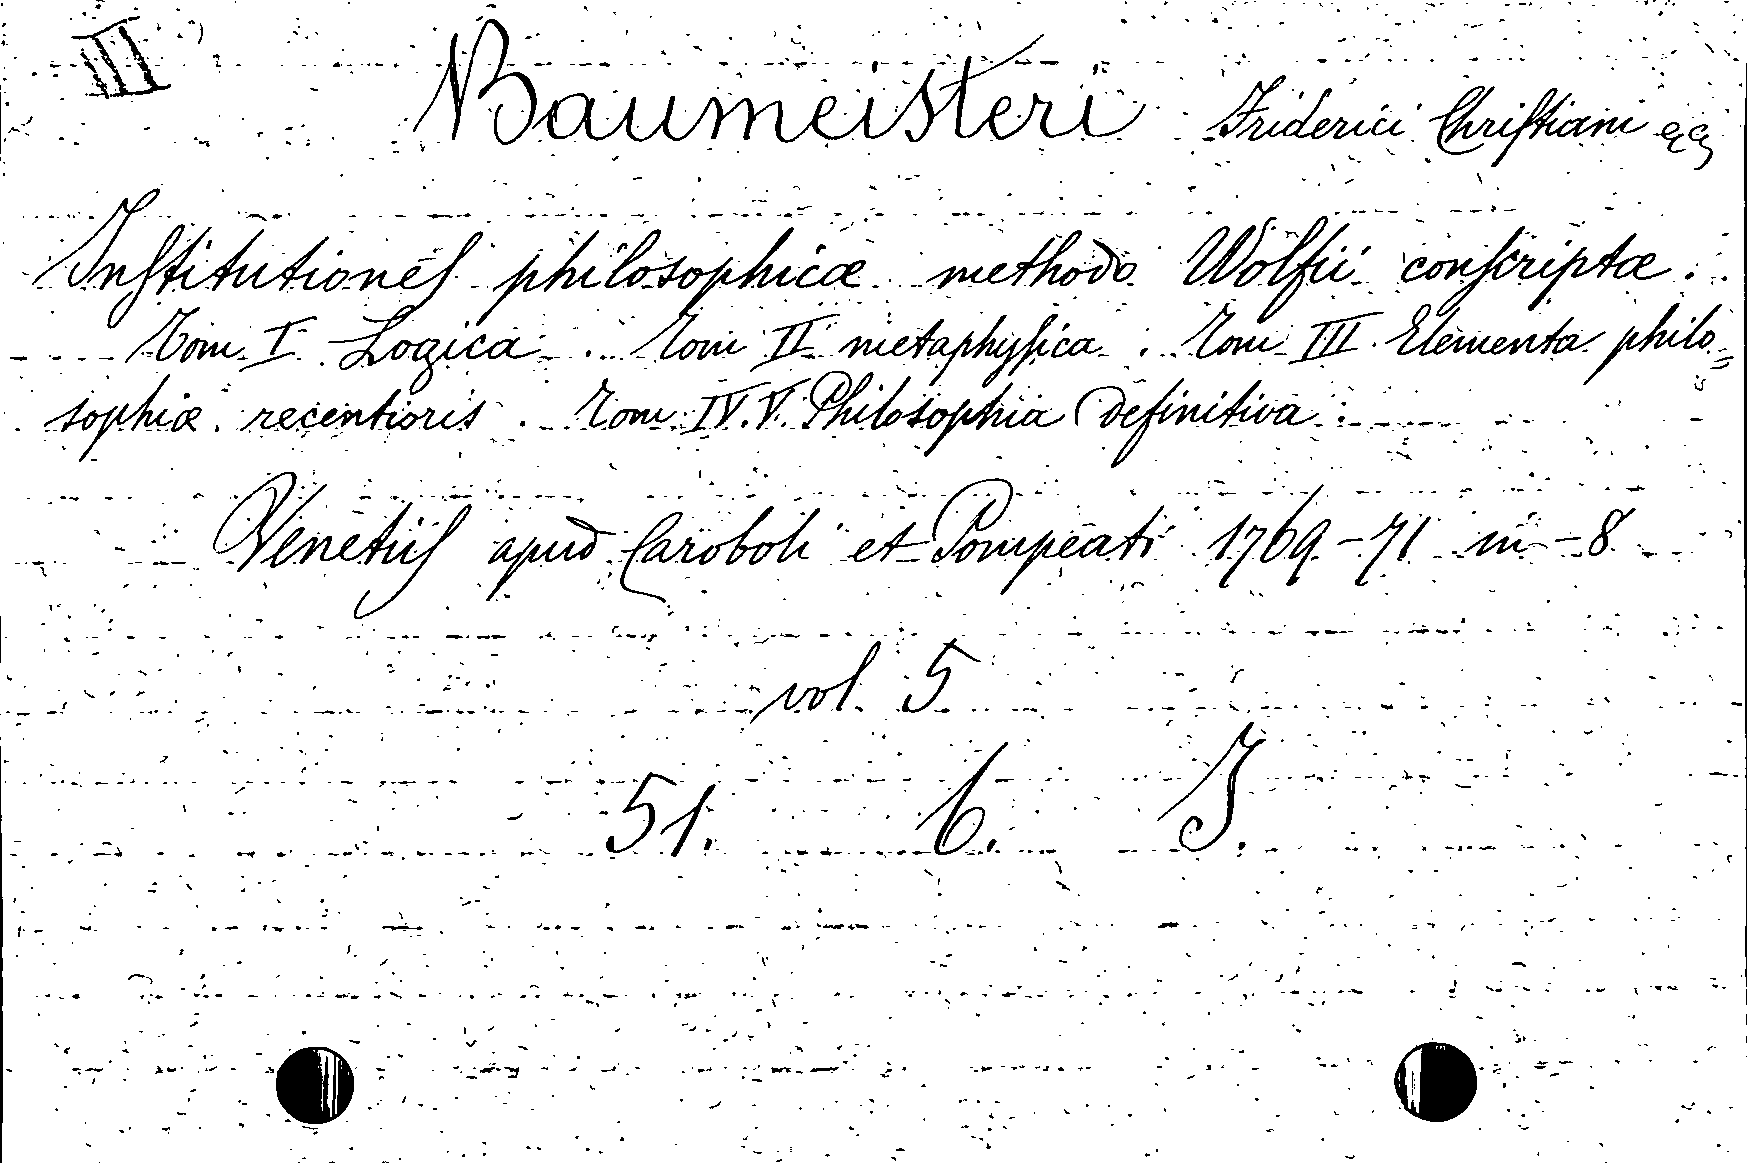 III
Baumeisteri Friderici Chriſtiani
Inſtitutioneſ philosophicæ methodo Wolfii conſcriptæ.
Tom I Logica. Tom II metaphyſica. Tom III. Elementa philo=
sophiæ recentioris. Tom IV. V. Philosophia definitiva.
Venetiiſ apud Caroboli et Pompeati 1769-71 in-8
vol. 5
51. 6. J.